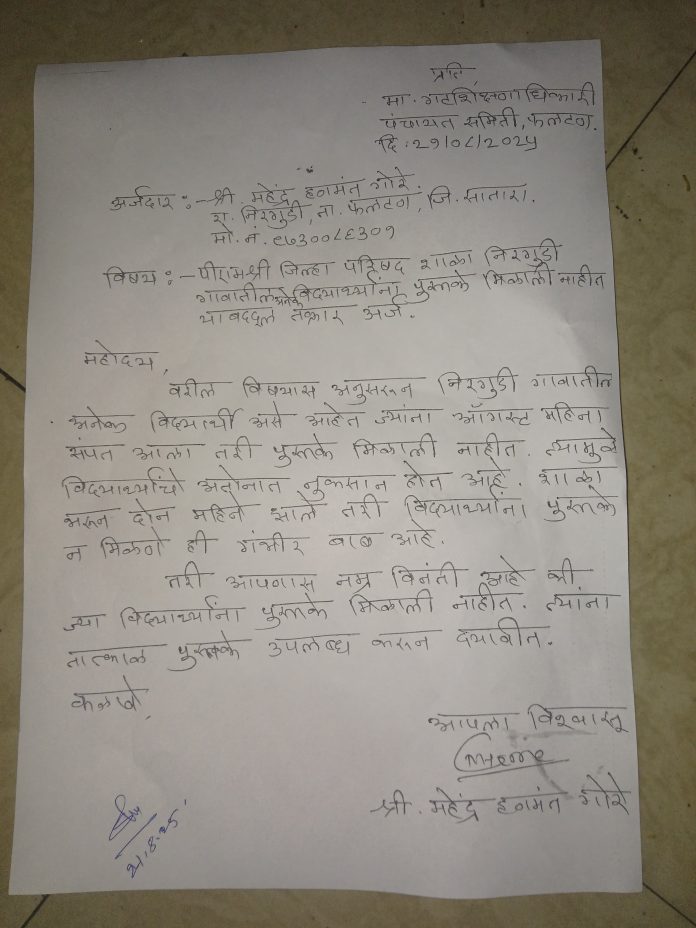 प्रति,
मा. गटशिक्षणाधिकारी
पंचायत समिती, फलटण.
दि : २१/०८/२०२५
अर्जदार :- श्री महेंद्र हणमंत गोरे.
रा. निरगुडी, ता. फलटण, जि. सातारा.
मो. नं. ९७३००८६३०१
विषय :- पीएमश्री जिल्हा परिषद शाळा निरगुडी
गावातील अनेक विद्यार्थ्यांना पुस्तके मिळाली नाहीत
याबद्दल तक्रार अर्ज.
महोदय,
वरील विषयास अनुसरून निरगुडी गावातील
अनेक विद्यार्थी असे आहेत ज्यांना ऑगस्ट महिना
संपत आला तरी पुस्तके मिळाली नाहीत. त्यामुळे
विद्यार्थ्यांचे अतोनात नुकसान होत आहे. शाळा
भरून दोन महिने झाले तरी विद्यार्थ्यांना पुस्तके
न मिळणे ही गंभीर बाब आहे.
तरी आपणास नम्र विनंती आहे की
ज्या विद्यार्थ्यांना पुस्तके मिळाली नाहीत. त्यांना
तात्काळ पुस्तके उपलब्ध करून दयावीत.
कळावे,
आपला विश्वासू
श्री. महेंद्र हणमंत गोरे
21.8.25